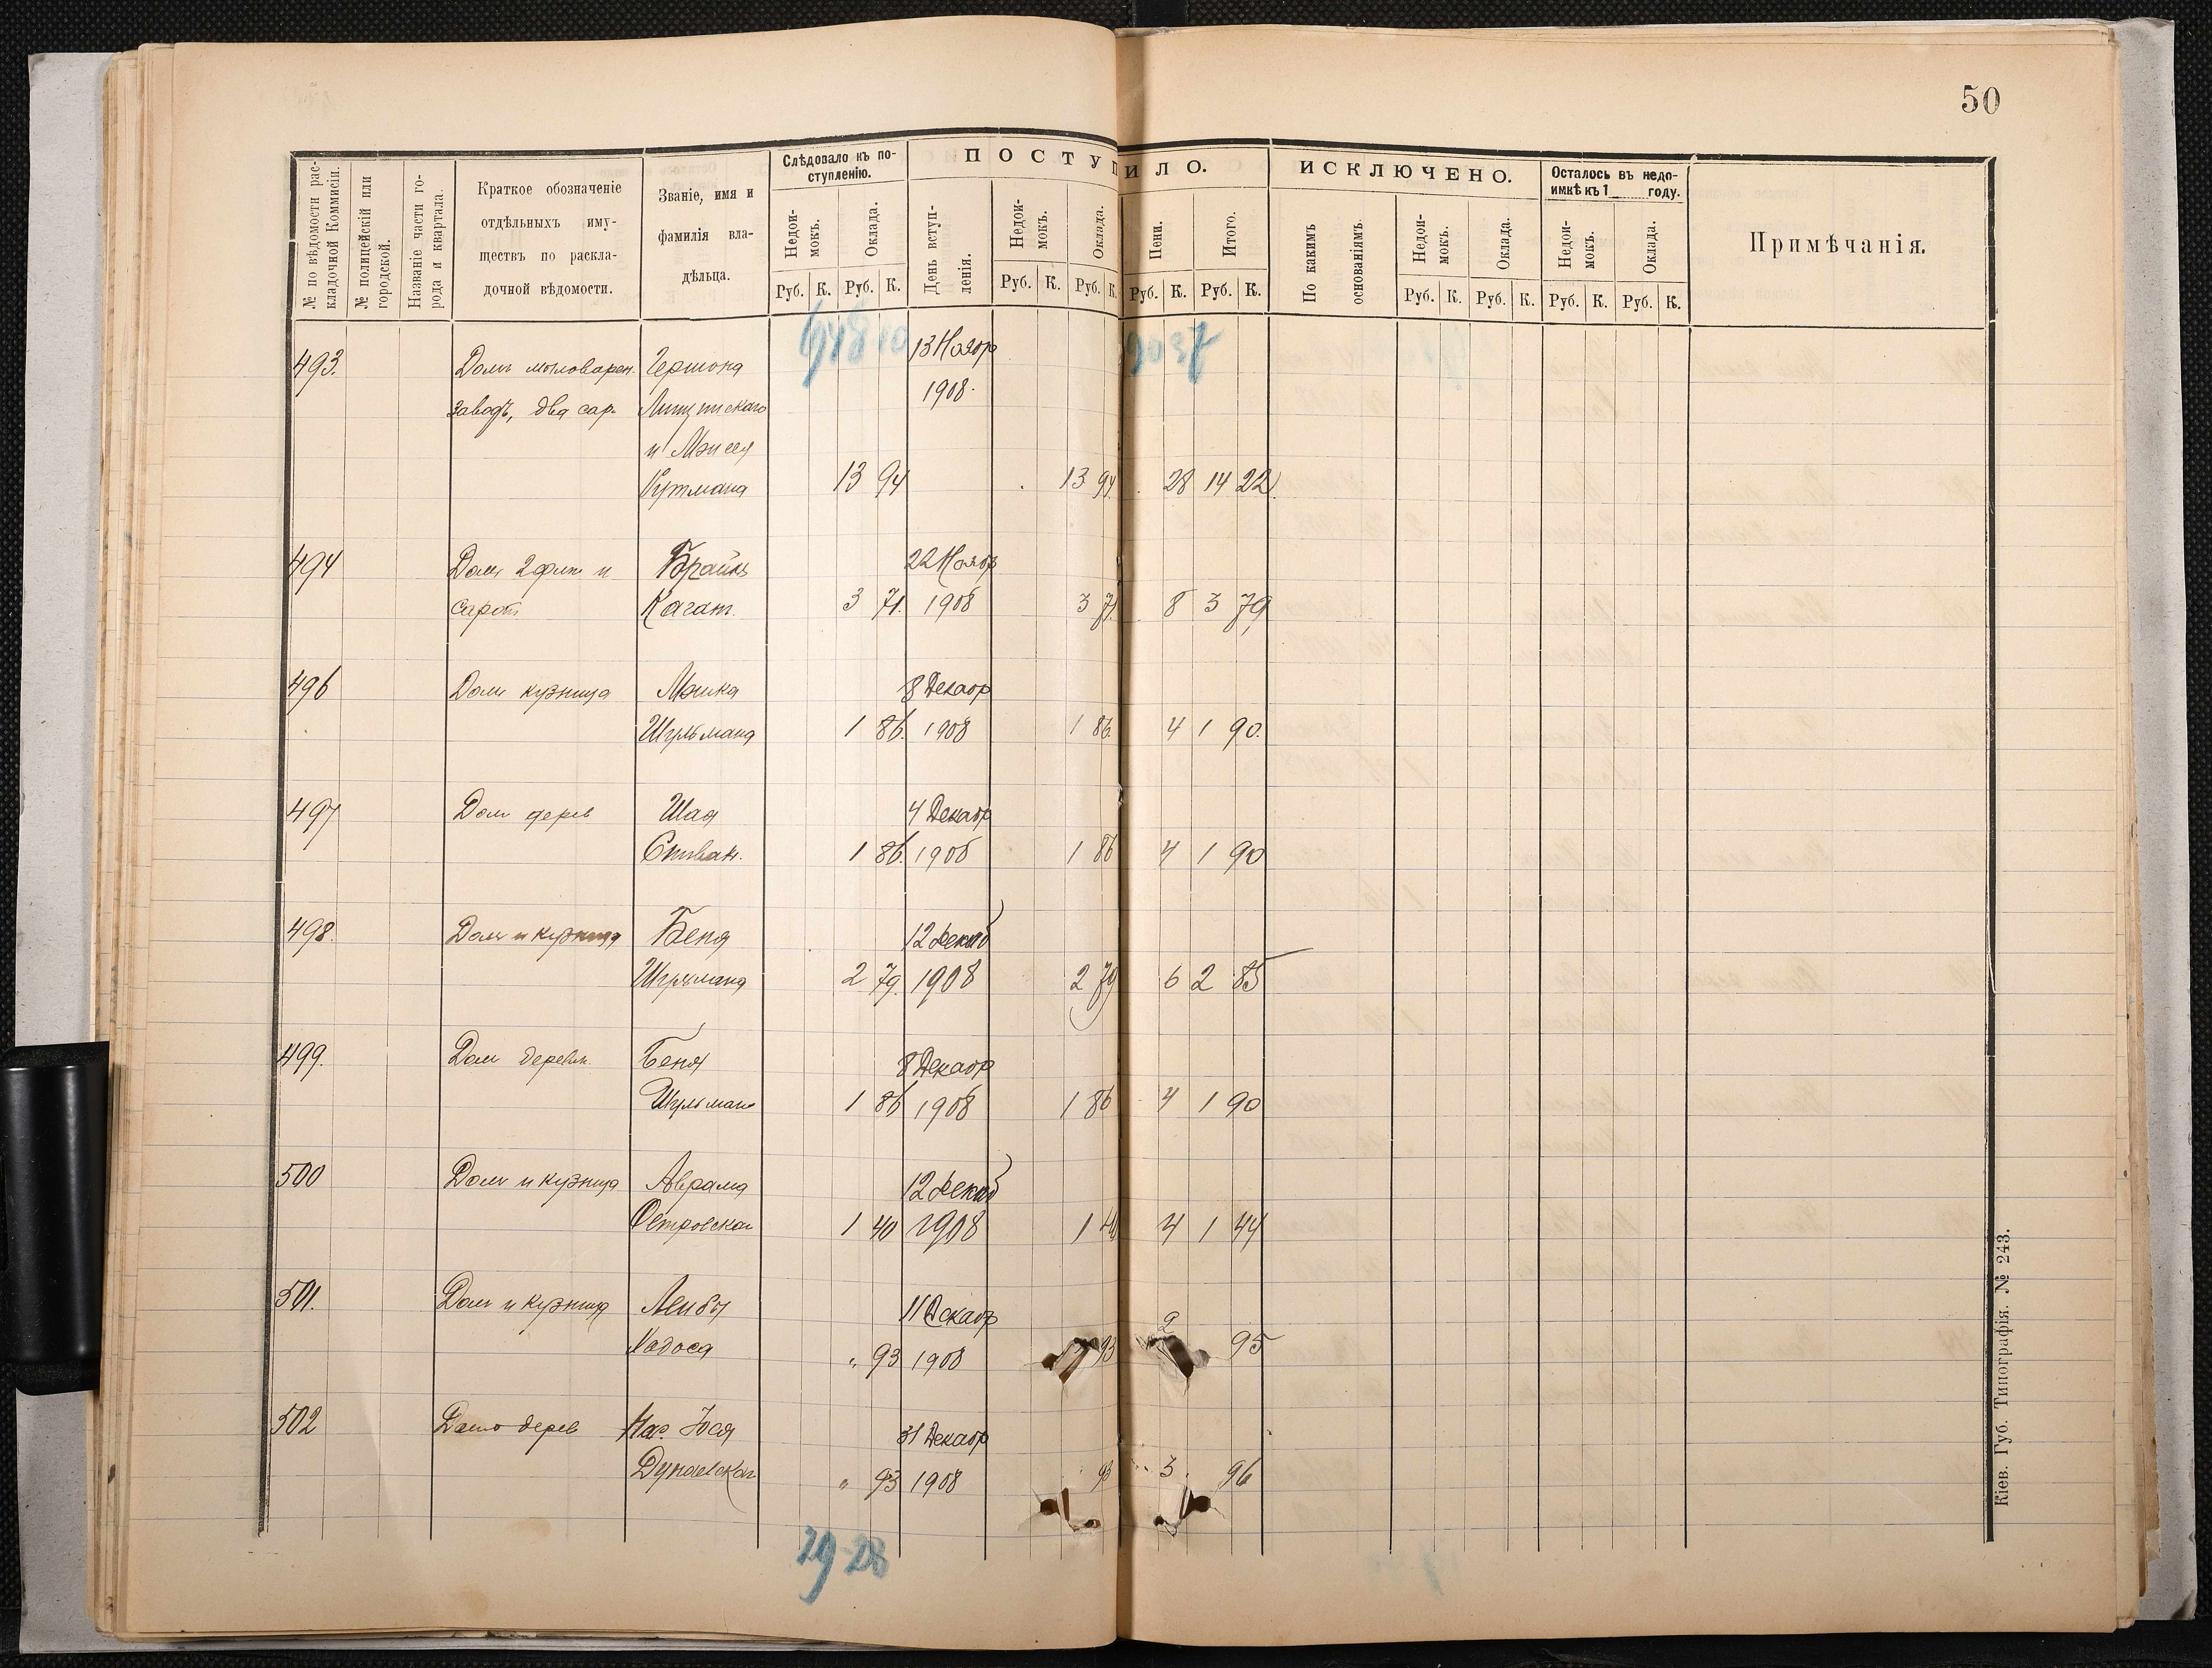 50
№ по вѣдомости раскладочной Коммисіи.
№ полицейскій или городской.
Названіе части города и квартала.
Краткое обозначеніе отдѣльныхъ имуществъ по раскладочной вѣдомости.
Званіе, имя и фамилія владѣльца.
Слѣдовало къ поступленію.
Недоимокъ.
Оклада.
Руб. К. Руб. К.
ПОСТУПИЛО.
День вступленія.
Недоимокъ.
Оклада.
Пени.
Итого.
Руб. К. Руб. К. Руб. К. Руб. К.
ИСКЛЮЧЕНО.
По какимъ основаніямъ
Недоимокъ.
Оклада.
Руб. К. Руб. К.
Осталось въ недоимкѣ къ 1 году.
Недоимокъ.
Оклада.
Руб. К. Руб. К.
Примѣчанія.
493. Домъ мыловарен. Гершона 13 Ноябр
заводъ, два сар. 1908.
и Моисея
Гутмана 13 94 13 94 28 14 22
494 Домъ 2 флиг и Брайны 22 Ноябр
сарай Каган. 3 71. 1908 3 71. 8 3 79
496 Домъ кузница Мошка 8 Декабр
Шульмана 1 86. 1908 1 86. 4 1 90.
497 Дом дерев Шая 4 Декабр
Спивак. 1 86. 1908 1 86 4 1 90
498. Домъ и кузница Беня 12 Декаб
Шульмана 2 79. 1908 2 79 6 2 85
499. Дом деревян. Беня 8 Декабр
Шульмана 1 86 1908 1 86 4 1 90
500 Домъ и кузница Аврама 12 Декаб
Островскаг 1 40 1908 1 40 4 1 44
501. Домъ и кузница Лейбы 11 Декабр
„ 93 1908 93 2 95
502 Домъ дерев Нас. Іося 31 Декабр
Дунаевскаг „ 93 1908 93 3 96
29-28
Кіев. Губ. Типографія. № 243.